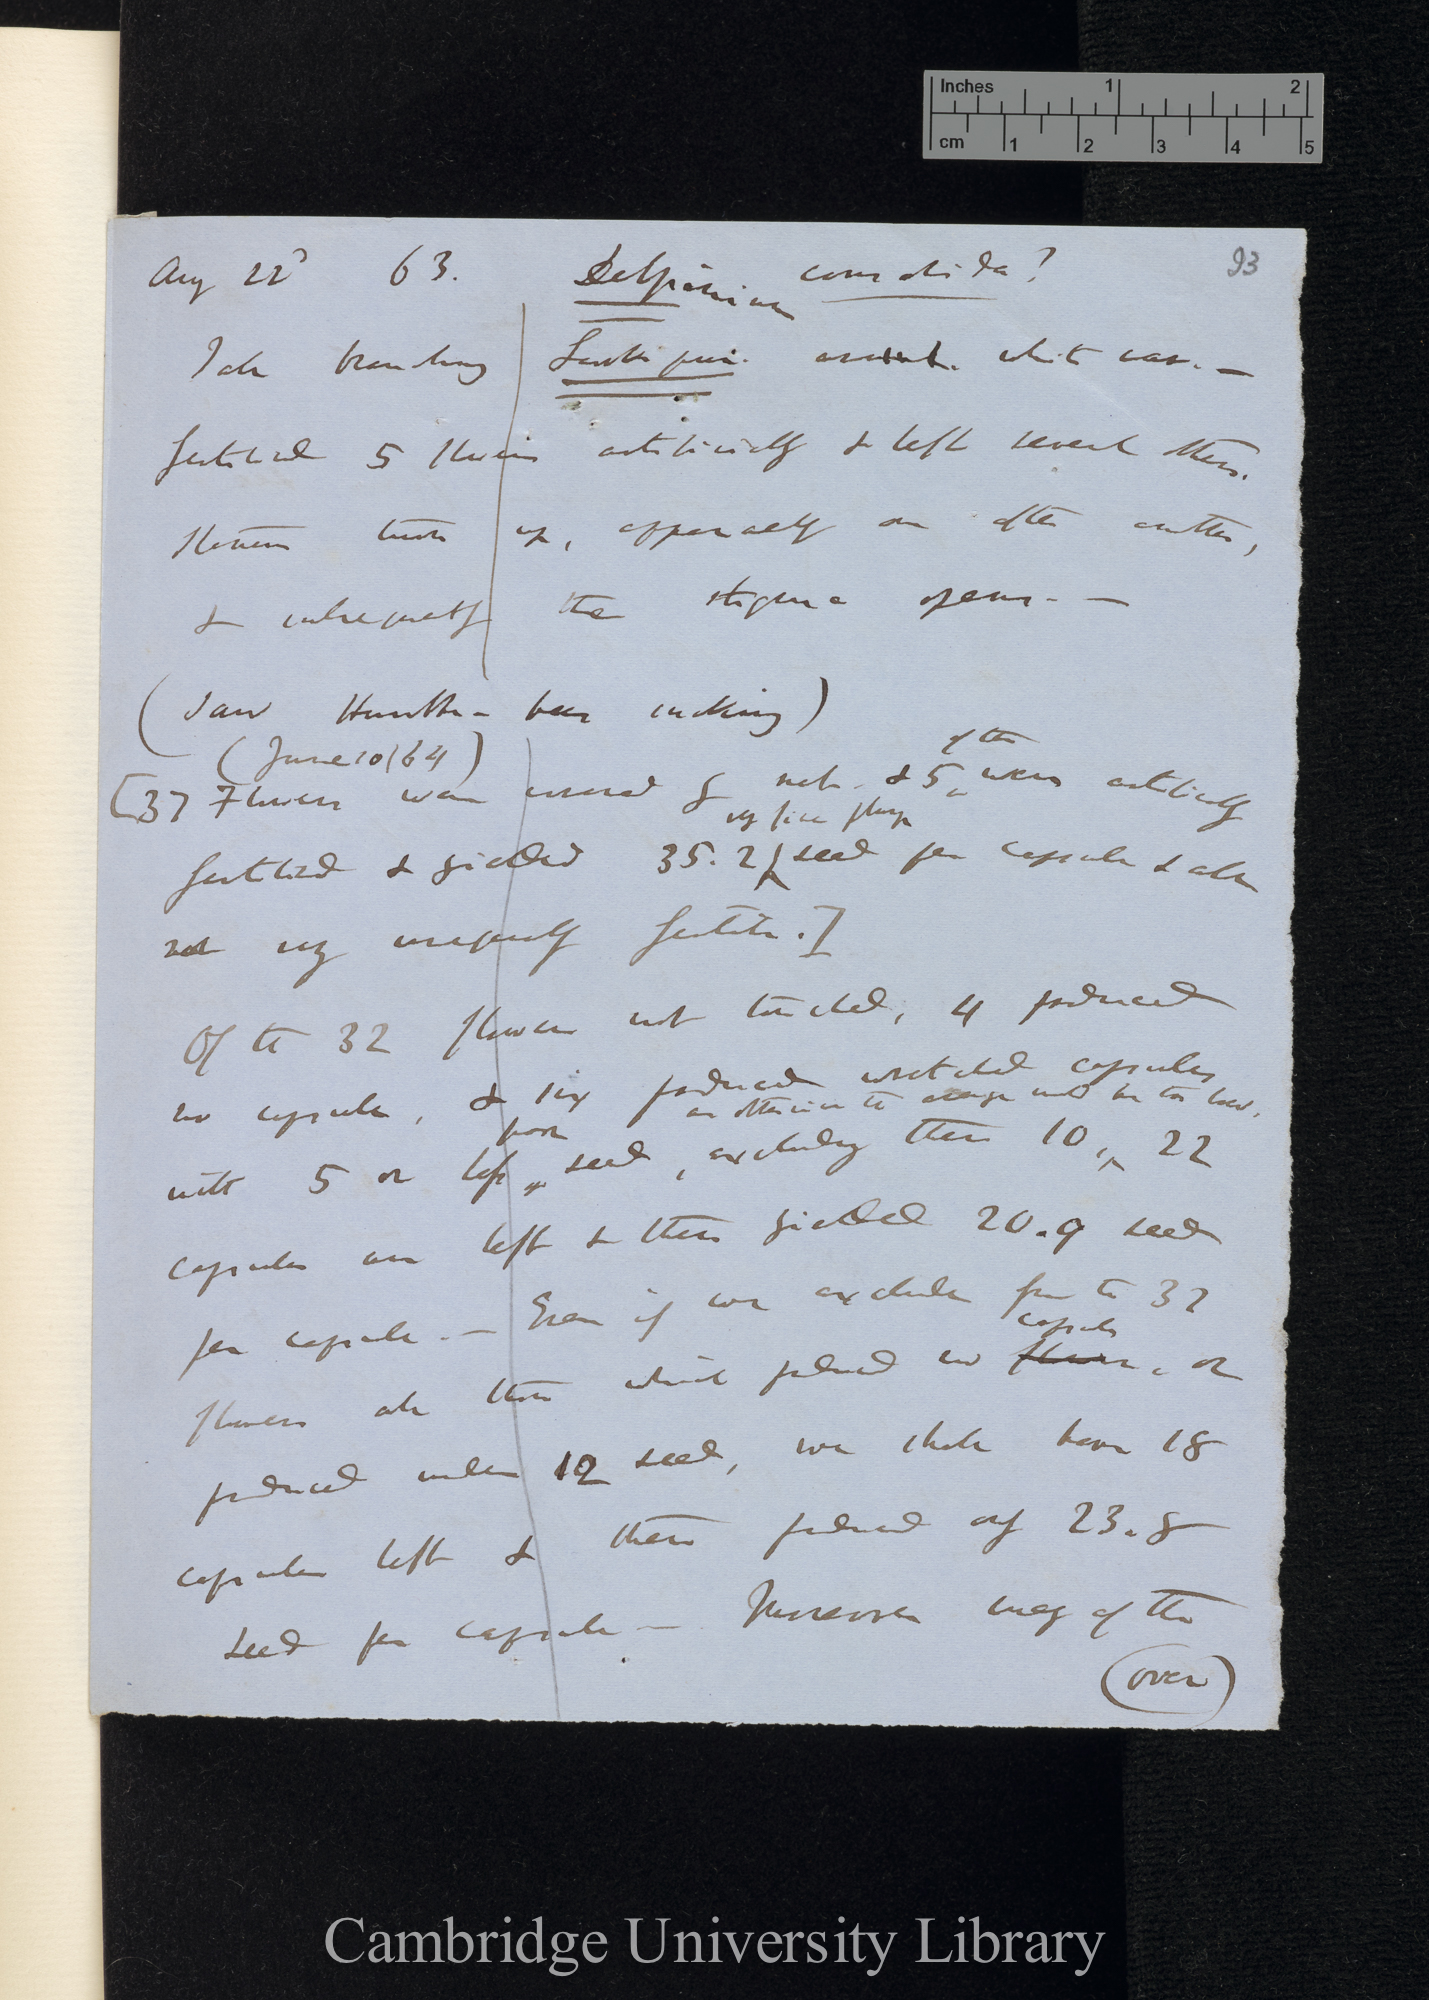 Inches 1 2
cm 1 2 3 4 5
Aug 22d 63. Delphinium consolida? 93
Tall branching Larkspur. annual. white var. —
fertilised 5 flowers artificially & left several others.
Stamens turn up, apparently one after another,
& subsequently the stigma opens. —
(Saw Humble-bees sucking)
(June 10/64)
of them
[37 Flowers were covered by net. & 5 were artificially
very fine plump
fertilised & yielded 35.2 seed per capsule & all
not very unequally fertile.]
Of the 32 flowers not touched, 4 produced
no capsule, & six produced wretched capsules
as otherwise the average would be too low.
poor
with 5 or less seed, excluding these 10, 22
capsules are left & these yielded 20.9 seed
per capsule. — Even if we exclude from the 32
capsules
flowers all those which produced no flowers, or
produced under 12 seed, we shall have 18
capsules left & these produced only 23.8
seed per capsule — Moreover many of the
(over)
Cambridge University Library